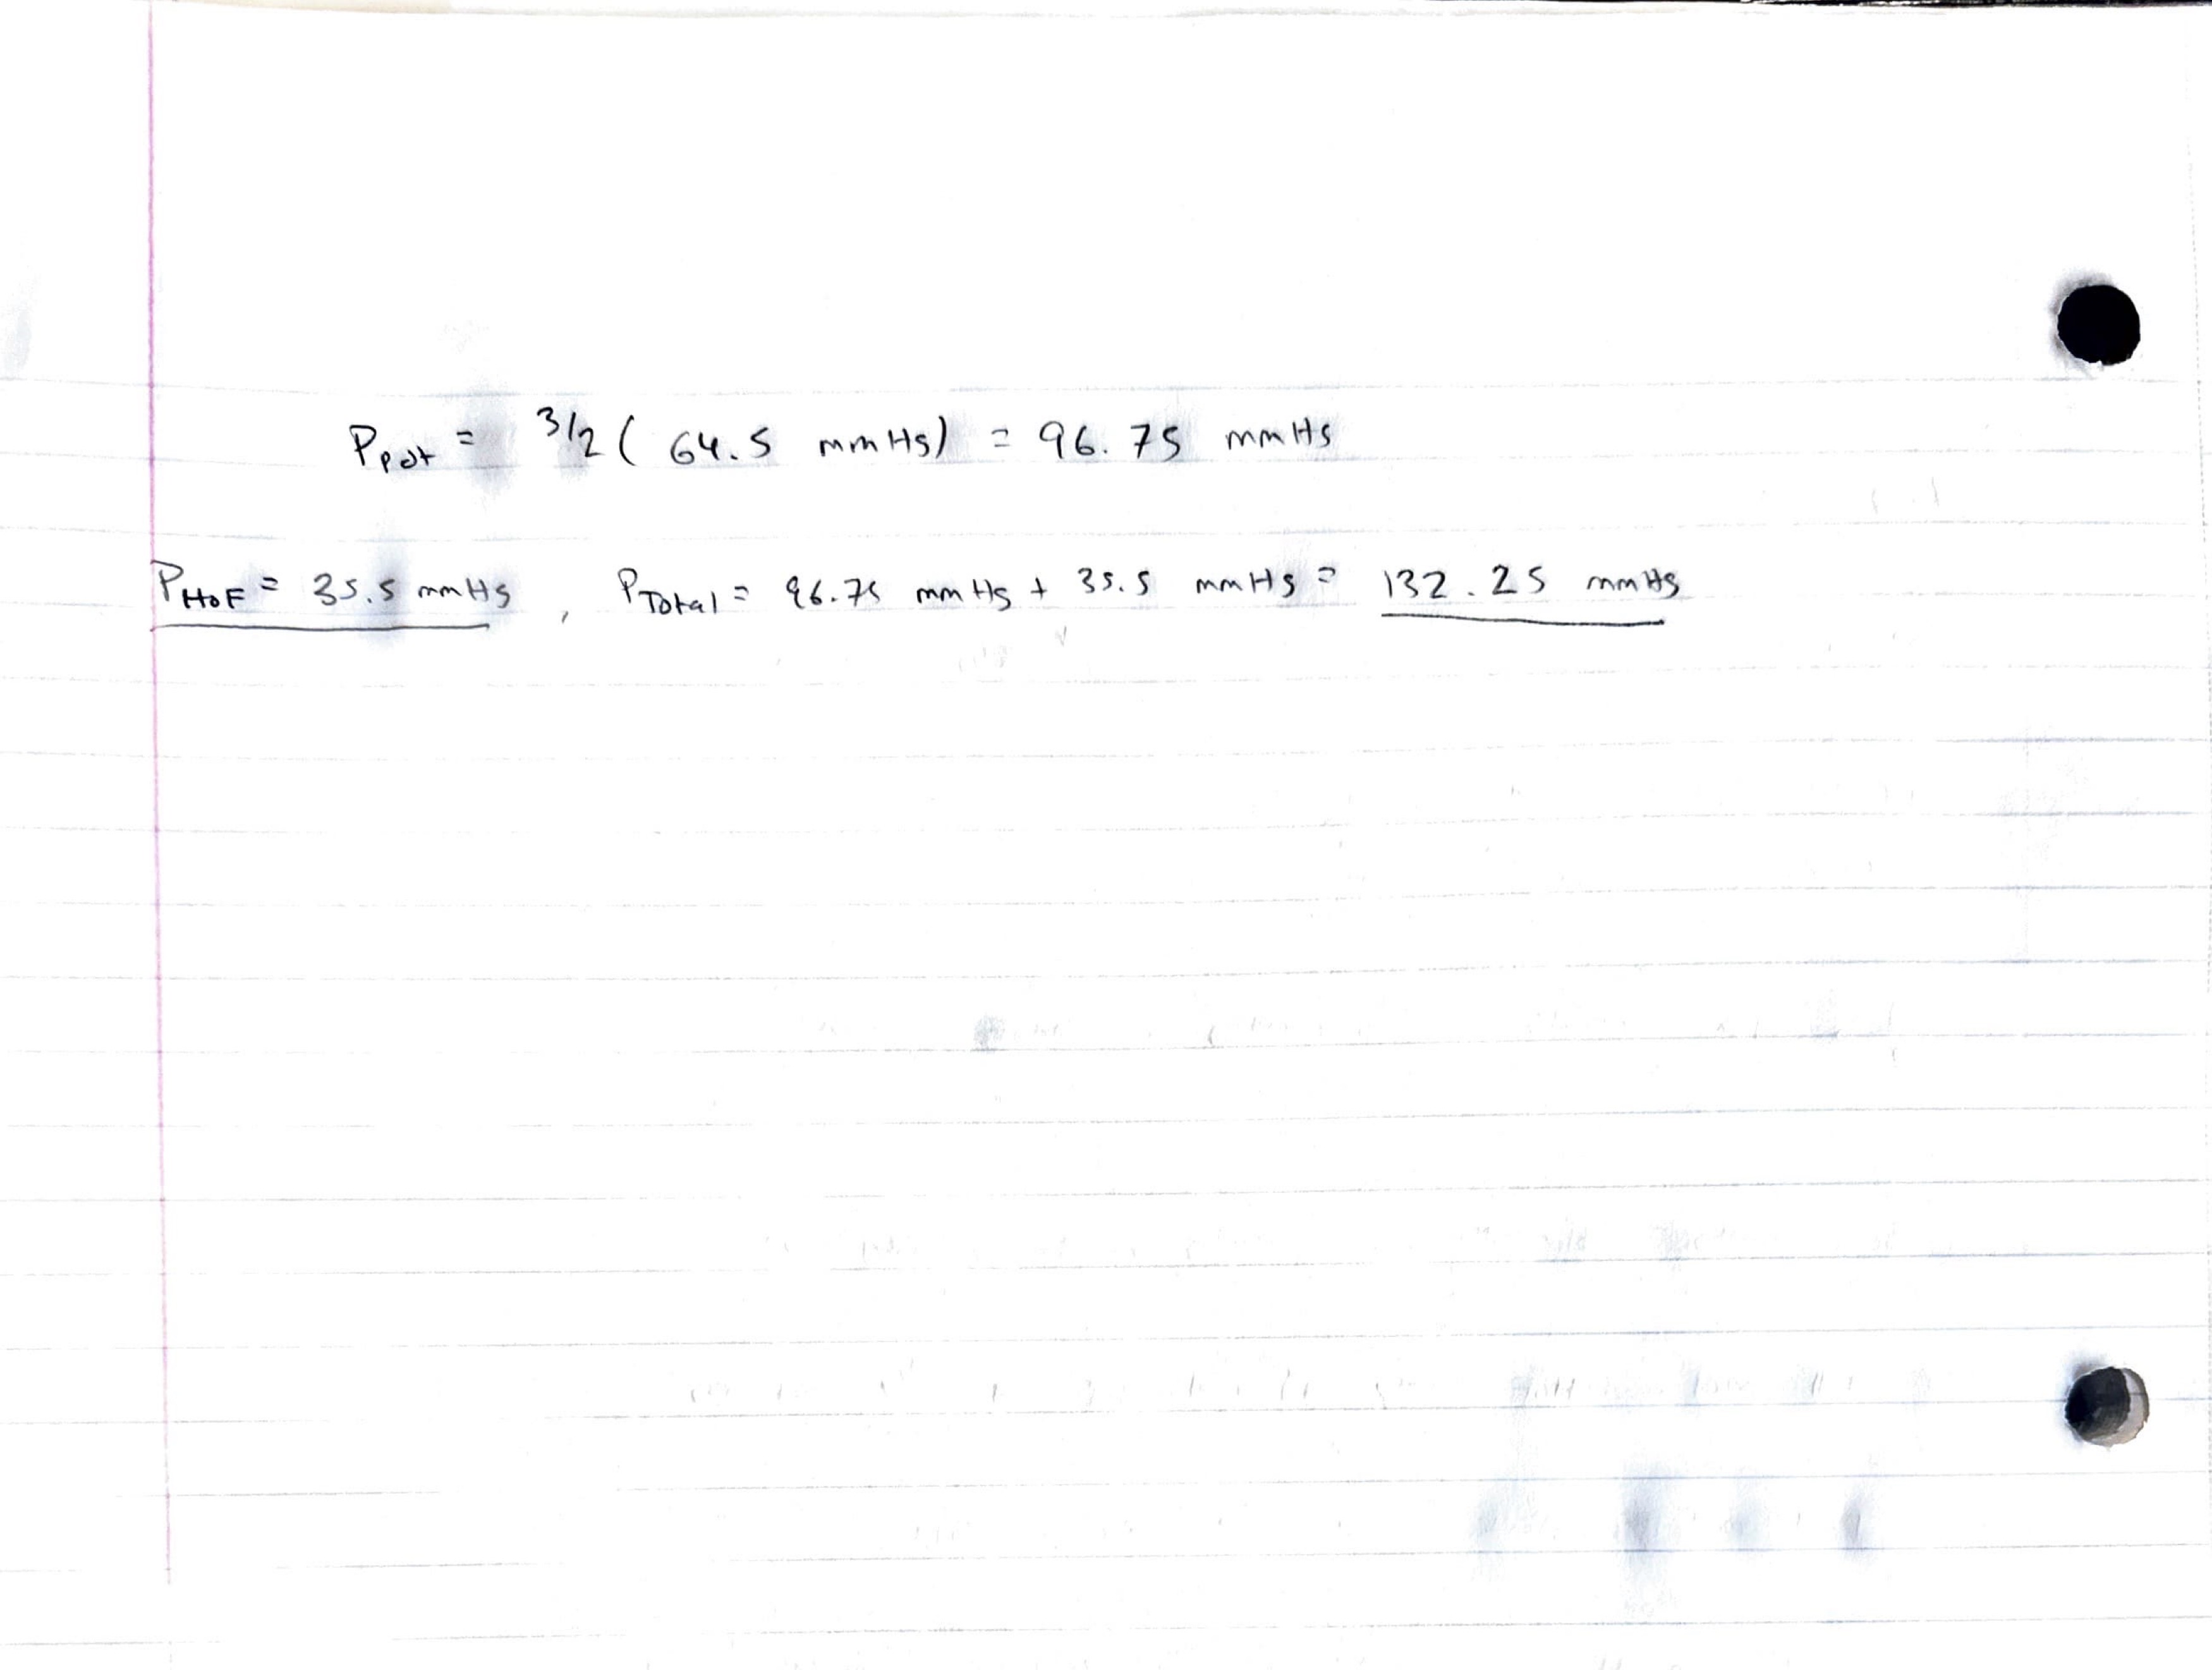 Ppot = 3/2 ( 64.5 mmHg) = 96.75 mmHg
PHOF = 35.5 mmHg , PTotal = 96.75 mmHg + 35.5 mmHg = 132.25 mmHg